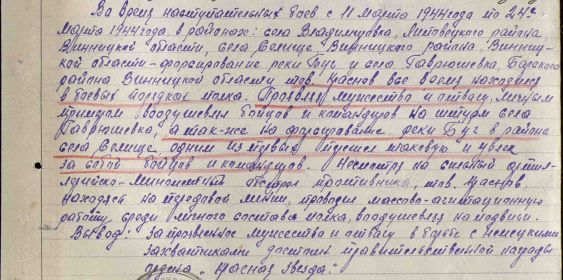 Во время наступательных боев с 11 марта 1944 года по 24-е
марта 1944 года в районах: села Владимировка, Литовецкого района
Винницкой области, села Селище, Винницкого района, Винниц-
кой области - форсирование реки Буг и села Гаврюшевка, Барского
района Винницкой области тов. Краснов все время находился
в боевых порядках полка. Проявляя мужество и отвагу, личным
примером воодушевлял бойцов и командиров на штурм села
Гаврюшевка, а так-же на форсирование реки Буг в районе
села Селище, одним из первых форсировал таковую и увлек
за собой бойцов и командиров. Несмотря на сильный артил-
лерийско-минометный обстрел противника, тов. Краснов,
находясь на передовой линии, проводил массово-агитационную
работу среди личного состава полка, воодушевляя на подвиги.
Вывод: За проявленное мужество и отвагу в борьбе с немецкими
захватчиками достоин правительственной награды
ордена "Красная Звезда".